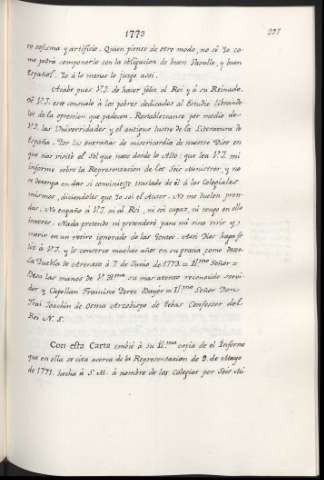 1773
ro cofisma y artificio. Quien piense de otro modo, no sé Yo co-
mo podrá componerlo con la obligacion de buen Vasallo, y buen
Español. Yo á lo menos lo juzgo assi.
Acabe pues V.I. de hacer feliz al Rei y á su Reinado.
Dé V.I. este consuelo á los pobres dedicados al Estudio librando-
los de la opresion que padecen. Restablezcanse por medio de
V.I. las Universidades y el antiguo lustre de la Literatura de
España. Por las entrañas de misericordia de nuestro Dios en
que nos visitó el Sol que nace desde lo Alto: que lea V.I. mi
informe sobre la Representacion de los Seis Ministros, y no
se detenga en dar si conviniesse traslado de él á los Colegiales
mismos, diciendoles que Yo soi el Autor. No me duelen pren-
das. No engaño á V.I. ni al Rei, ni soi capaz, ni tengo en ello
interes. Nada pretendo ni pretenderé para mi sino vivir y
morir en un retiro ignorado de las gentes. Assi Dios haga fe-
liz á V.I. y lo conserve muchos años en su gracia como deseo.
La Puebla de 7 de Junio de 1773. = Il.mo Señor =
Besa las manos de V. Il.ma su mas atento reconocido servi-
dor y Capellan Francisco Perez Bayer = Il.mo Señor Don
Frai Joachin de Osma Arzobispo de Tebas Confessor del
Rei N. S.
Con esta Carta embié á su Il.ma copia de el Informe
que en ella se cita acerca de la Representacion de 8. de Mayo
de 1771. hecha á S. M. á nombre de los Colegios por Seis Mi